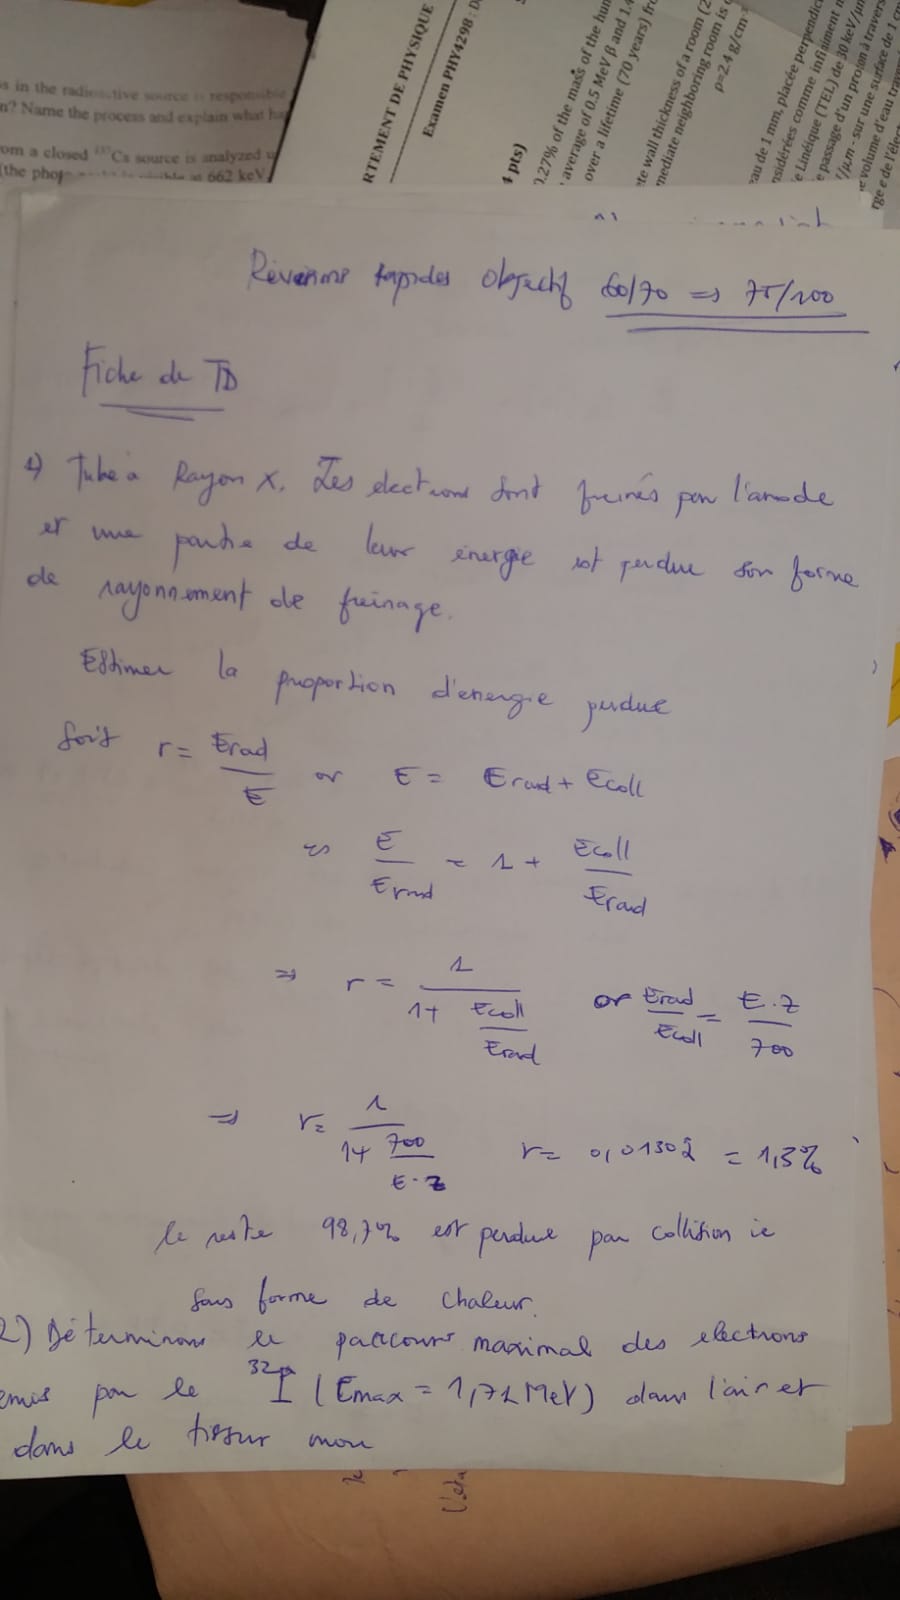 s in the radioactive source is responsible
n? Name the process and explain what ha
om a closed ¹³⁷Cs source is analyzed u
(the phot at 662 keV
RTEMENT DE PHYSIQUE
Examen PHY4298 : D
4 pts)
0.27% of the mass of the hum
average of 0.5 MeV β and 1.4
over a lifetime (70 years) fro
te wall thickness of a room (2
mediate neighboring room is
ρ=2.4 g/cm
au de 1 mm, placée perpendic
nsidérées comme infiniment
e Linéique (TEL) de 30 keV/μm
e passage d'un proton à travers
/μm - sur une surface de 1 c
e volume d'eau tra
rge e de l'élec
Révisions rapides Objectif 60/70 => 75/100
Fiche de TD
1) Tube à Rayon X. Les electrons sont freinés par l'anode
et une partie de leur énergie est perdue son forme
de rayonnement de freinage.
Estimer la proportion d'energie perdue
Soit r = Erad / E or E = Erad + Ecoll
⇔ E / Erad = 1 + Ecoll / Erad
⇒ r = 1 / (1 + Ecoll / Erad) or Erad / Ecoll = E.Z / 700
⇒ r = 1 / (1 + 700 / E.Z) r = 0,01302 = 1,3%
le reste 98,7% est perdue par collision ie
sous forme de chaleur.
2) Déterminons le parcours maximal des electrons
emis par le ³²P (Emax = 1,71 MeV) dans l'air et
dans le tissur mou